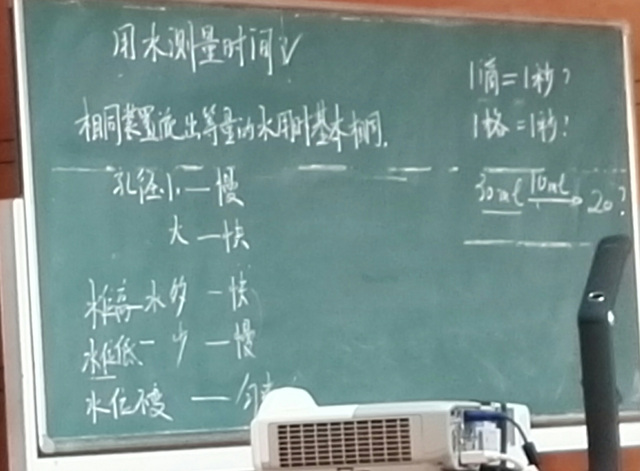 用水测量时间√
相同装置流出等量的水用时基本相同.
孔径小—慢
大—快
水位高—水多—快
水位低—少—慢
水位不变——匀
1滴=1秒?
1格=1秒?
30ml 10ml→20?